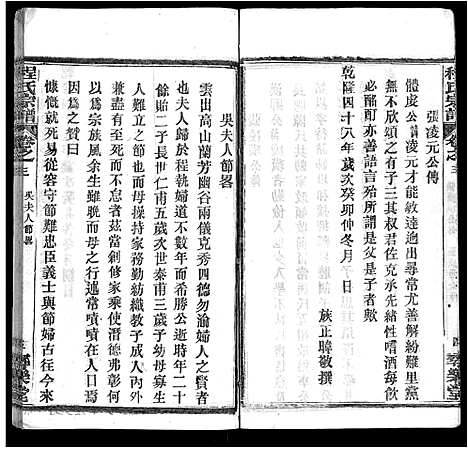 程氏宗譜 卷之三
張凌元公傳
體虞公諱凌元才能敏達迥出尋常尤善解紛難里黨
無不欣頌之有子三其權君佐克承先緒性嗜酒每飲
必酩酊亦善諧言殆所謂是父是子者歟
乾隆四十八年歲次癸卯仲冬月 子日
族正暐敬撰
四
程氏宗譜 卷之三 吳夫人節畧
吳夫人節畧
雲出高山蘭芳幽谷兩儀克秀四德勿渝婦人之賢者
也夫人歸於程執婦道不數年而希勝公逝時年二十
餘貽二子長世仁甫五歲次世泰甫三歲子幼母寡生
人難立之節也而母操持家務勤紡織教子成人內外
無間言至於死而不忘者茲當創修家乘使潛德弗彰何
以爲宗族風余生雖晚而母之行遁常嘖嘖在人口
因爲之贊曰
慷慨就死易從容守節難忠臣義士與節婦古往今來